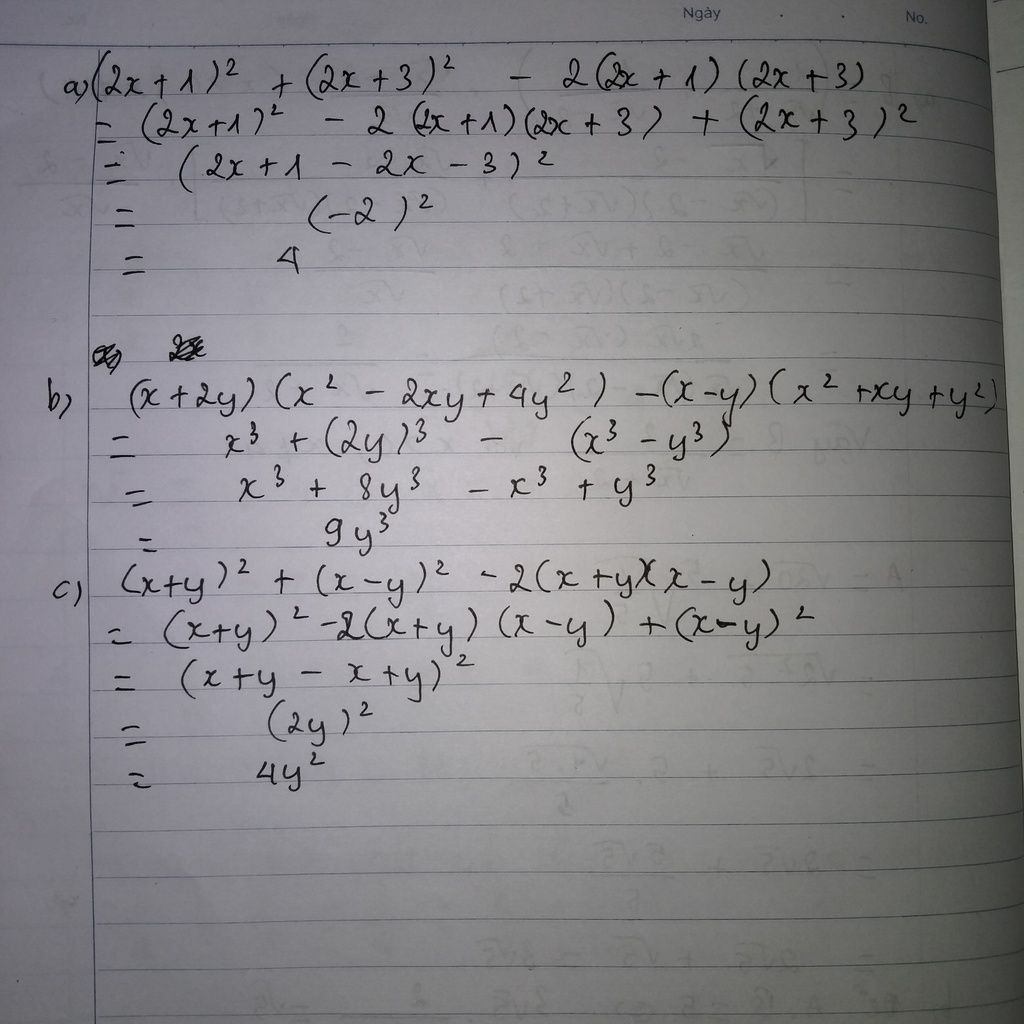 Ngày . . No.
a) (2x + 1)² + (2x + 3)² - 2(2x + 1)(2x + 3)
= (2x+1)² - 2(2x+1)(2x + 3) + (2x + 3)²
= (2x+1 - 2x - 3)²
= (-2)²
= 4
b) (x+2y)(x² - 2xy + 4y²) -(x-y)(x² +xy +y²)
= x³ + (2y)³ - (x³ - y³)
= x³ + 8y³ - x³ + y³
= 9y³
c) (x+y)² + (x-y)² - 2(x+y)(x-y)
= (x+y)² -2(x+y)(x-y) +(x-y)²
= (x+y - x+y)²
= (2y)²
= 4y²